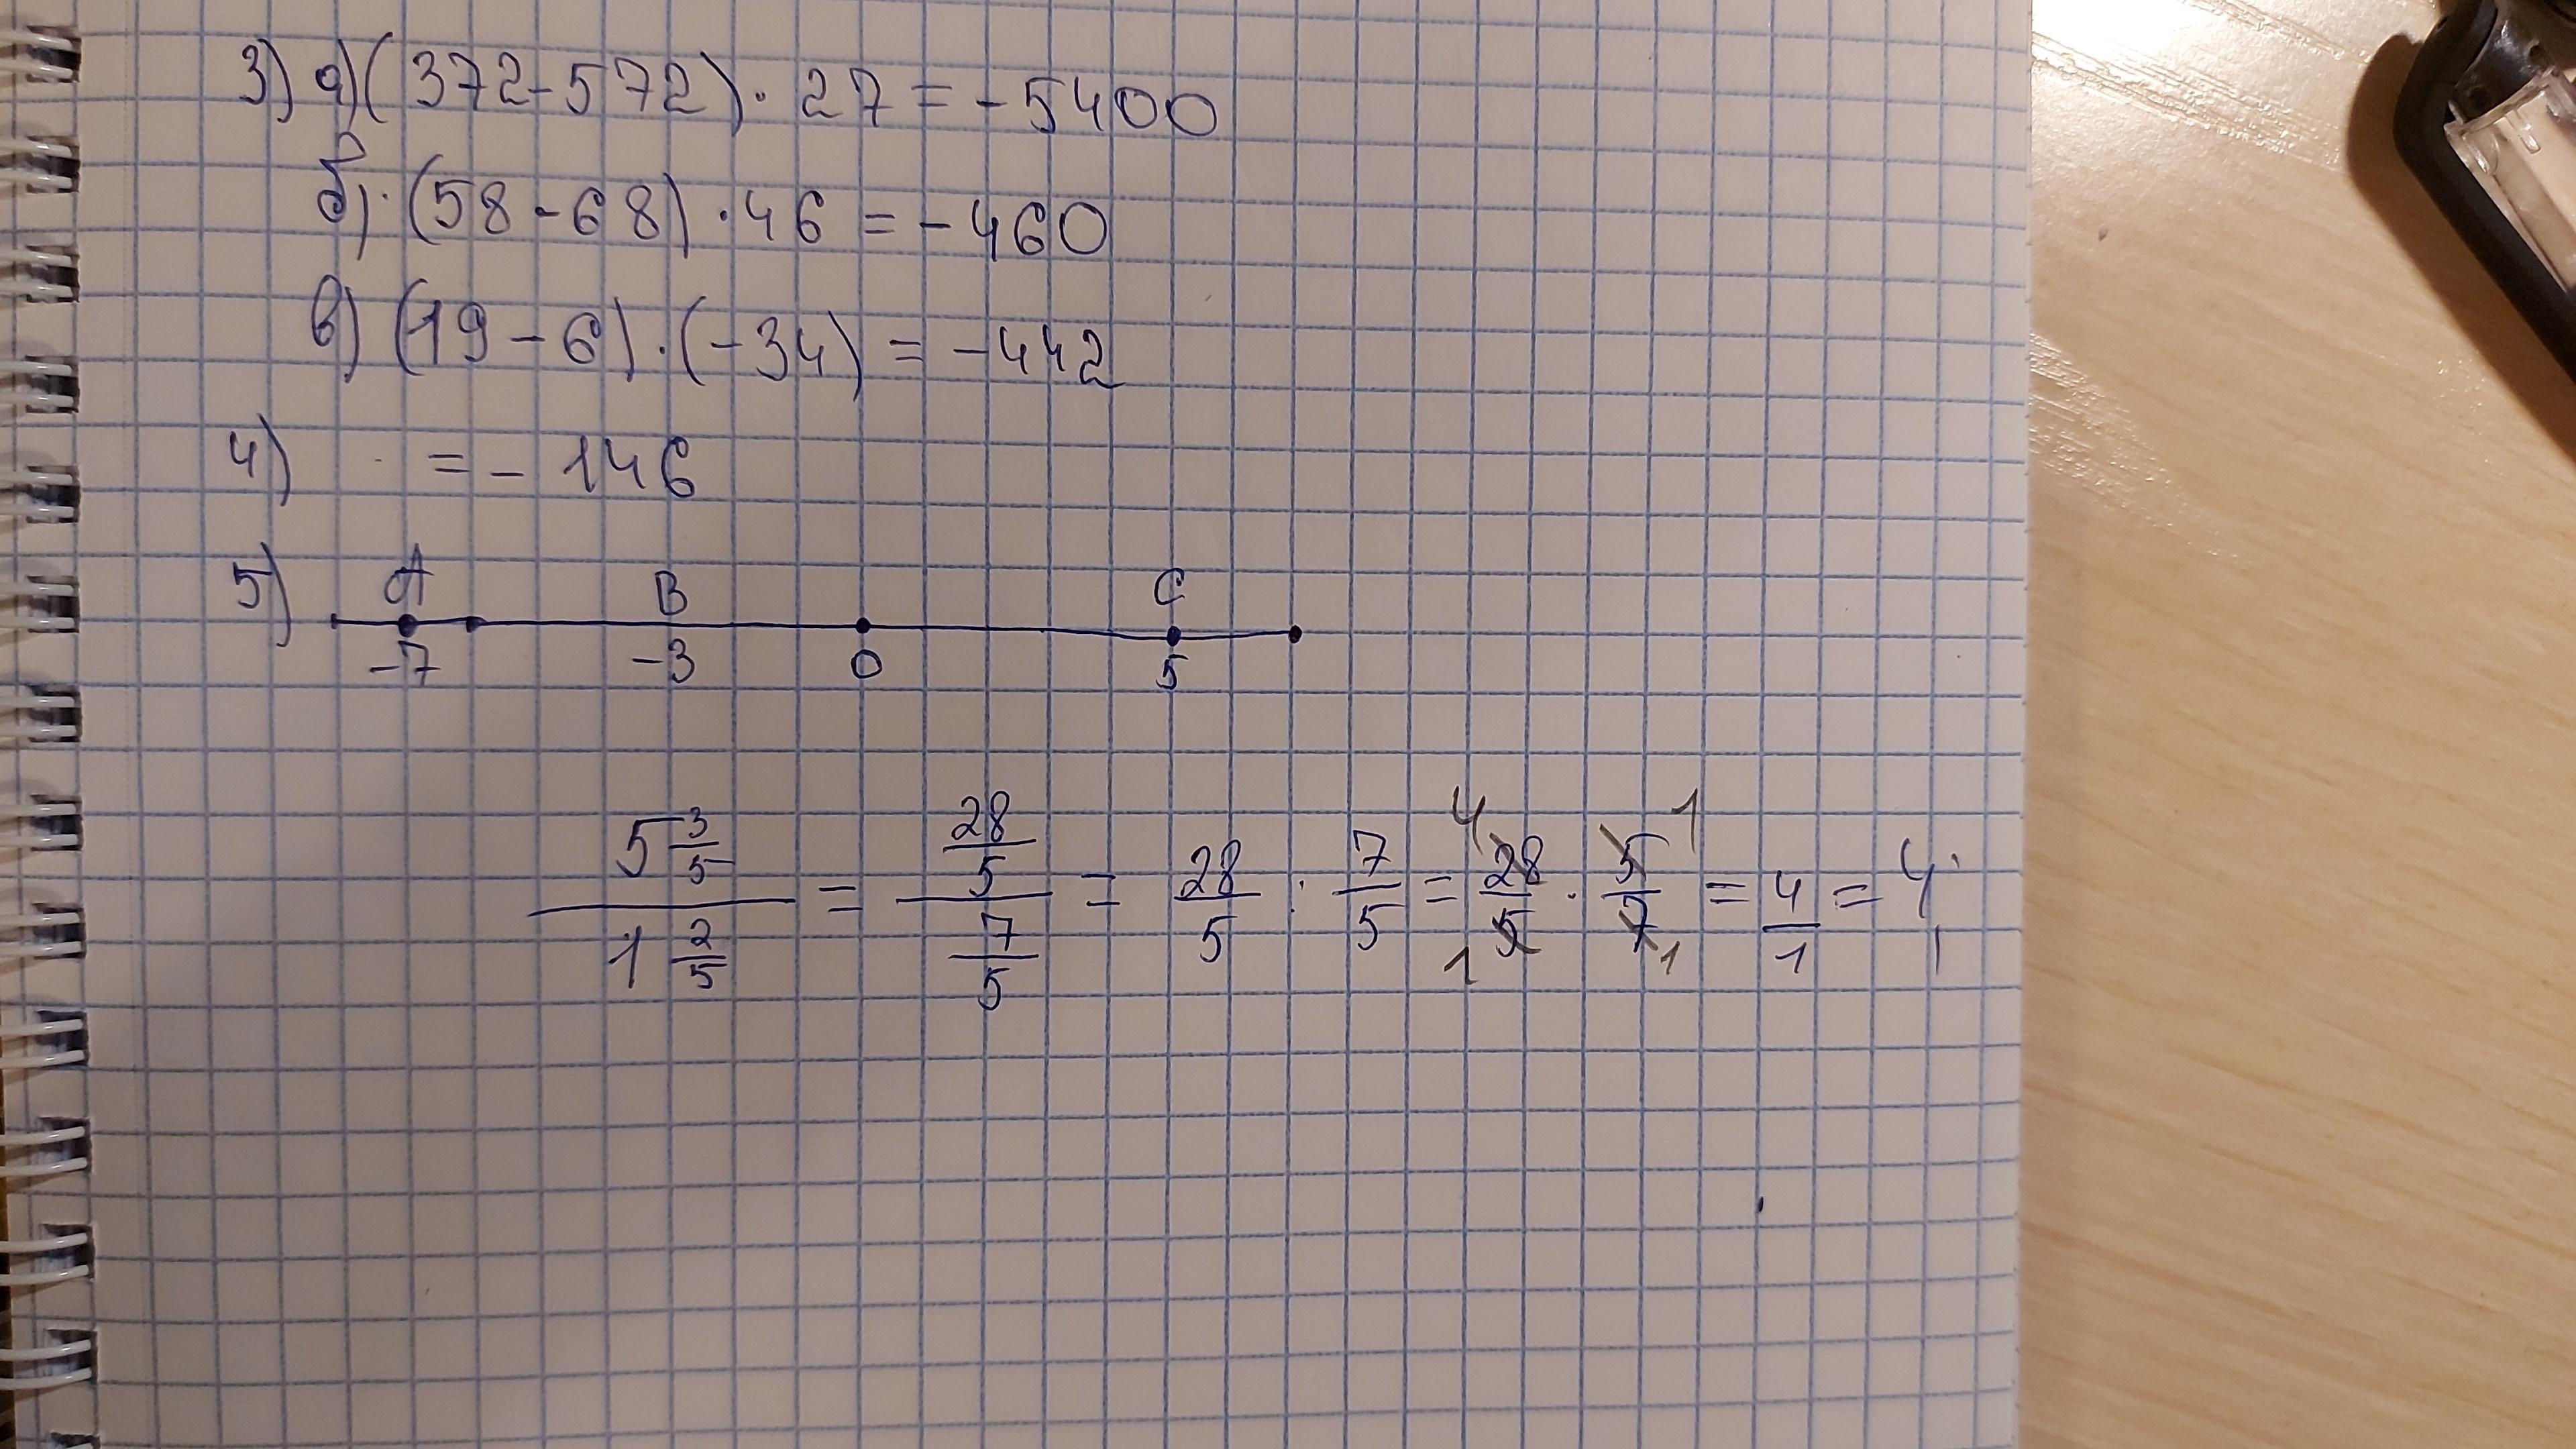 3) а) (372-572) · 27 = -5400
б) · (58-68) · 46 = -460
в) (19-6) · (-34) = -442
4) · = - 146
5) A B C
-7 -3 0 5
5 3/5 / 1 2/5 = 28/5 / 7/5 = 28/5 : 7/5 = 4 28/5 1 · 5 1/7 1 = 4/1 = 4